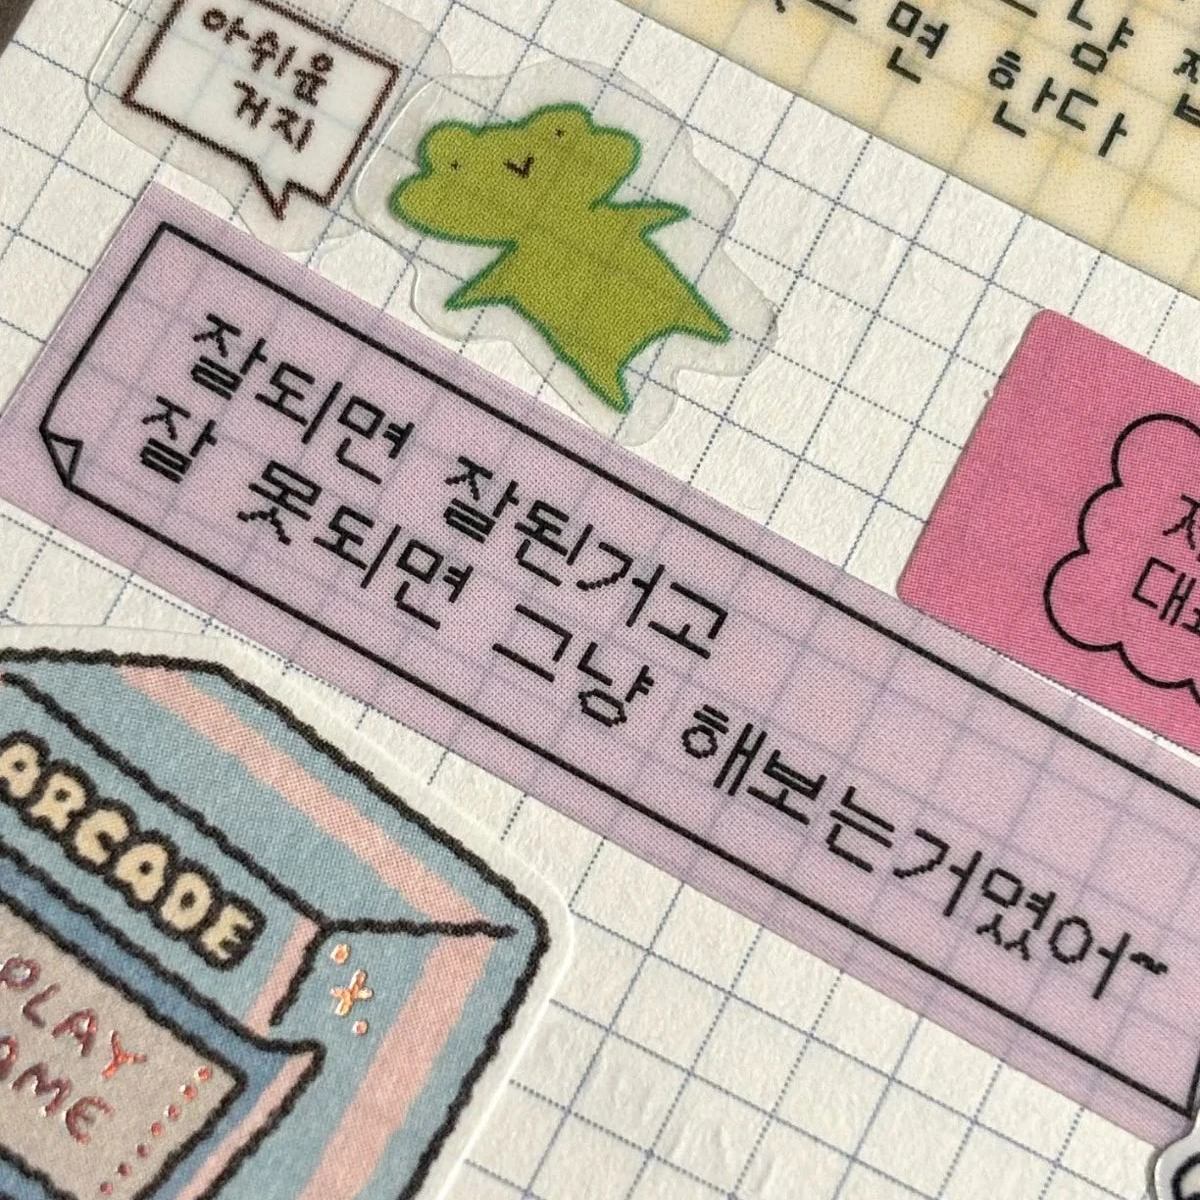 아쉬운
거지
면 한다
잘되면 잘된거고
잘 못되면 그냥 해보는거였어~
대
ARCADE
PLAY
GAME